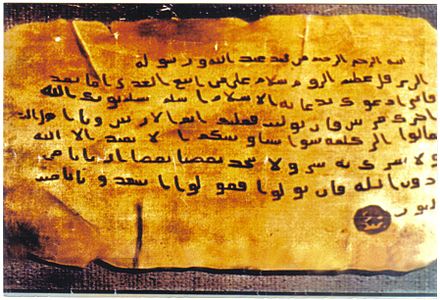 الله الرحمن الرحيم من محمد عبد الله ورسوله
الى هرقل عظيم الروم سلام على من اتبع الهدى اما بعد
فانى ادعوك بدعاية الاسلام اسلم تسلم يوتك الله
اجرك مرتين فان توليت فعليك اثم الاريسيين ويا اهل الكتا
تعالوا الى كلمة سوا بيننا وبينكم الا نعبد الا الله
ولا نشرك به شيا ولا يتخذ بعضنا بعضا اربابا من
دون الله فان تولوا فقولوا اشهدوا بانا مسـ
لمون